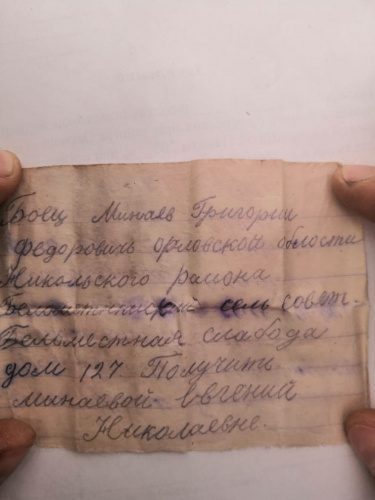 Боец Минаев Григории
Федоровичь орловской области
Никольского района
сель совет.
Бельместная слабода
дом 127 Получить
минаевой Евгении
Николаевне.